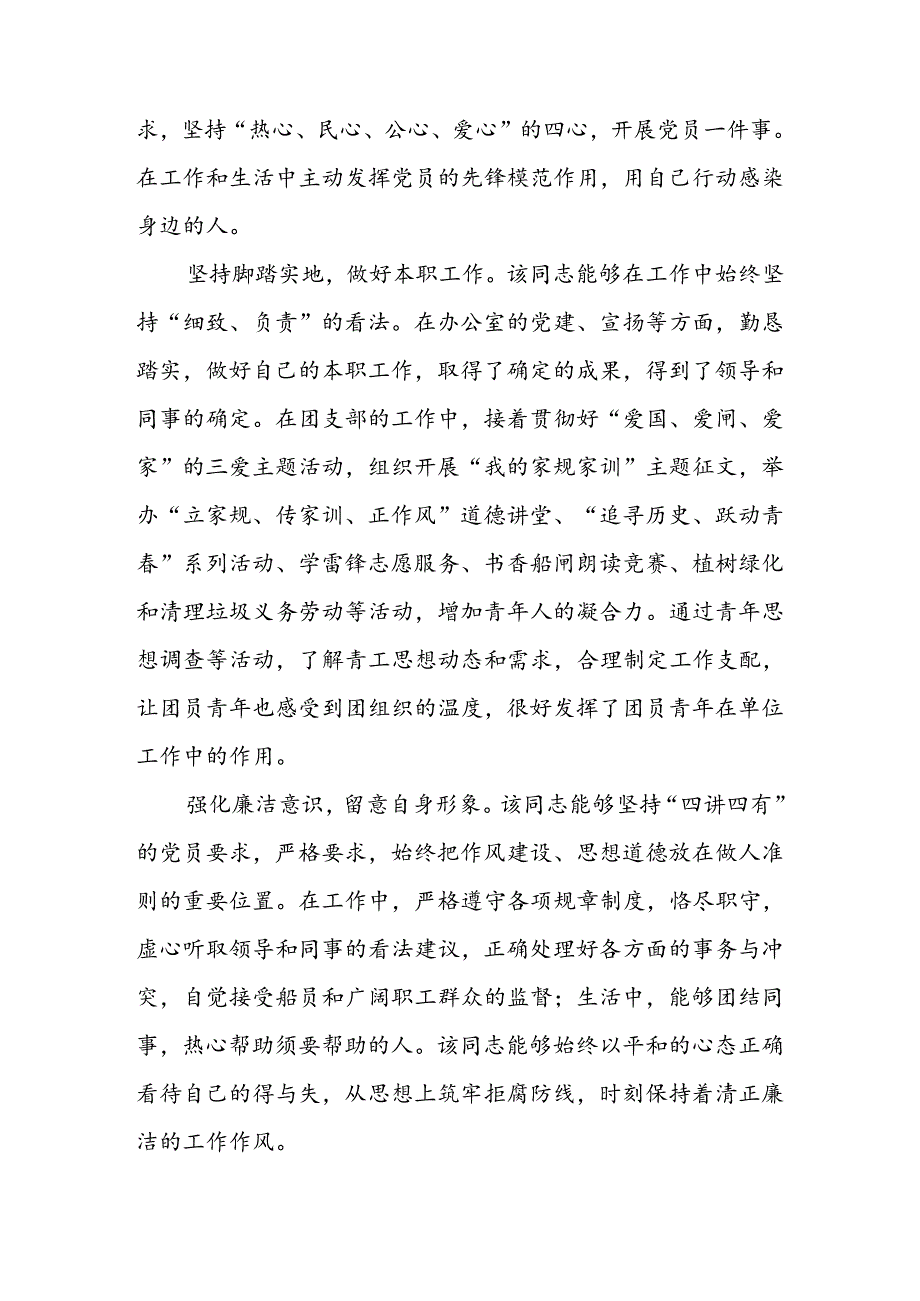 求，坚持“热心、民心、公心、爱心”的四心，开展党员一件事。
在工作和生活中主动发挥党员的先锋模范作用，用自己行动感染
身边的人。
坚持脚踏实地，做好本职工作。该同志能够在工作中始终坚
持“细致、负责”的看法。在办公室的党建、宣扬等方面，勤恳
踏实，做好自己的本职工作，取得了确定的成果，得到了领导和
同事的确定。在团支部的工作中，接着贯彻好“爱国、爱闸、爱
家”的三爱主题活动，组织开展“我的家规家训”主题征文，举
办“立家规、传家训、正作风”道德讲堂、“追寻历史、跃动青
春”系列活动、学雷锋志愿服务、书香船闸朗读竞赛、植树绿化
和清理垃圾义务劳动等活动，增加青年人的凝合力。通过青年思
想调查等活动，了解青工思想动态和需求，合理制定工作支配，
让团员青年也感受到团组织的温度，很好发挥了团员青年在单位
工作中的作用。
强化廉洁意识，留意自身形象。该同志能够坚持“四讲四有”
的党员要求，严格要求，始终把作风建设、思想道德放在做人准
则的重要位置。在工作中，严格遵守各项规章制度，恪尽职守，
虚心听取领导和同事的看法建议，正确处理好各方面的事务与冲
突，自觉接受船员和广阔职工群众的监督；生活中，能够团结同
事，热心帮助须要帮助的人。该同志能够始终以平和的心态正确
看待自己的得与失，从思想上筑牢拒腐防线，时刻保持着清正廉
洁的工作作风。